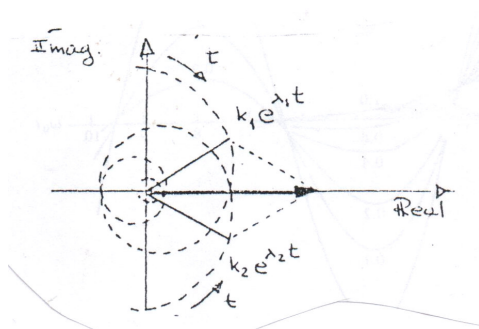 Imag.
t
k₁e^λ₁t
Real
k₂e^λ₂t
t